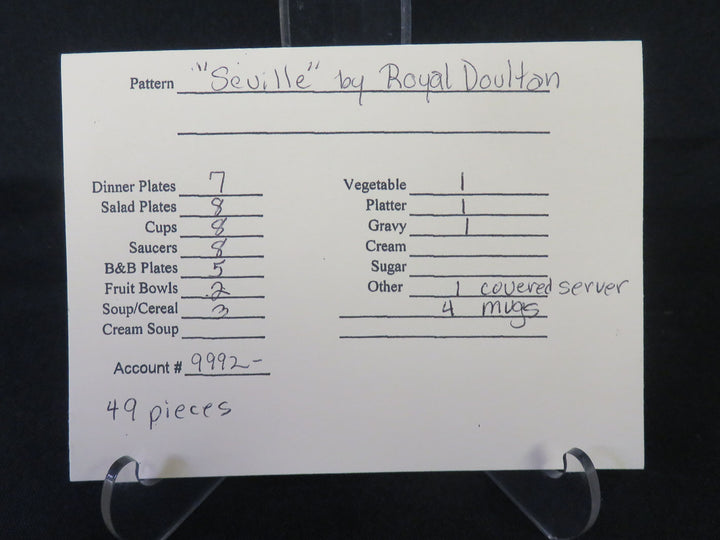 Pattern "Seville" by Royal Doulton
Dinner Plates 7
Salad Plates 8
Cups 8
Saucers 8
B&B Plates 5
Fruit Bowls 2
Soup/Cereal 3
Cream Soup
Vegetable 1
Platter 1
Gravy 1
Cream
Sugar
Other 1 covered server
4 mugs
Account # 9992-
49 pieces